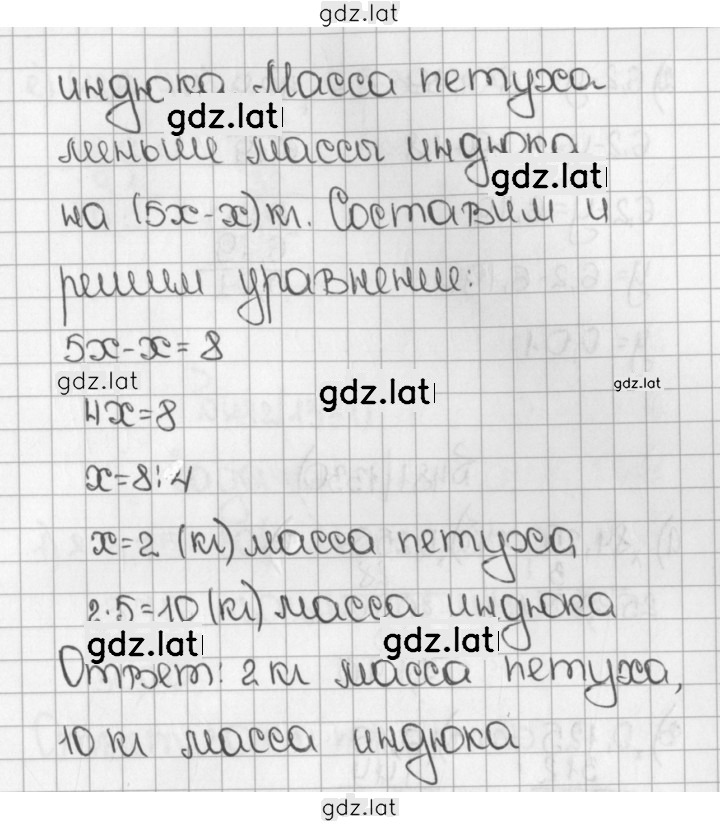 gdz.lat
индюка. Масса петуха
gdz.lat
меньше массы индюка
gdz.lat
на (5x-x) кг. Составим и
решим уравнение:
5x-x=8
gdz.lat gdz.lat gdz.lat
4x=8
x=8:4
x=2 (кг) масса петуха
2·5=10 (кг) масса индюка
gdz.lat gdz.lat
Ответ: 2 кг масса петуха,
10 кг масса индюка
gdz.lat